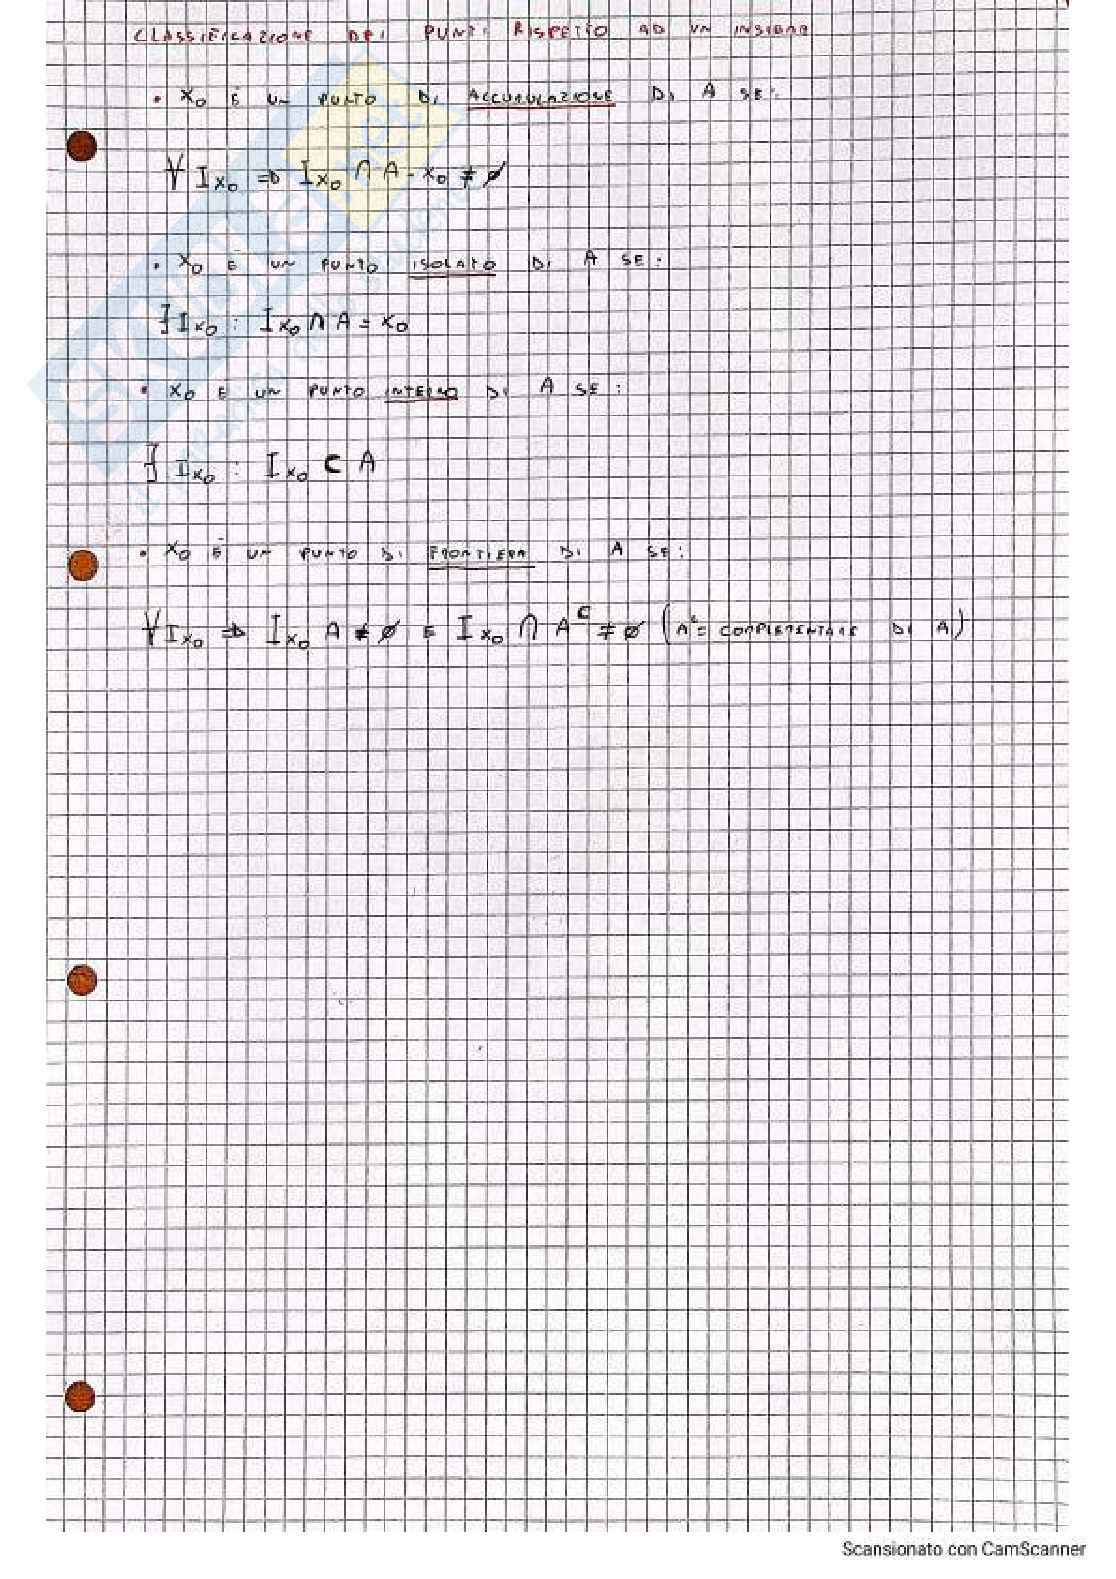 CLASSIFICAZIONE DEI PUNTI RISPETTO AD UN INSIEME
• X₀ È UN PUNTO DI ACCUMULAZIONE DI A SE:
∀ Ix₀ ⇒ Ix₀ ∩ A - x₀ ≠ ∅
• X₀ È UN PUNTO ISOLATO DI A SE:
∃ Ix₀ : Ix₀ ∩ A = x₀
• X₀ È UN PUNTO INTERNO DI A SE:
∃ Ix₀ : Ix₀ ⊂ A
• X₀ È UN PUNTO DI FRONTIERA DI A SE:
∀ Ix₀ ⇒ Ix₀ A ≠ ∅ E Ix₀ ∩ Aᶜ ≠ ∅ (Aᶜ = COMPLEMENTARE DI A)
Scansionato con CamScanner